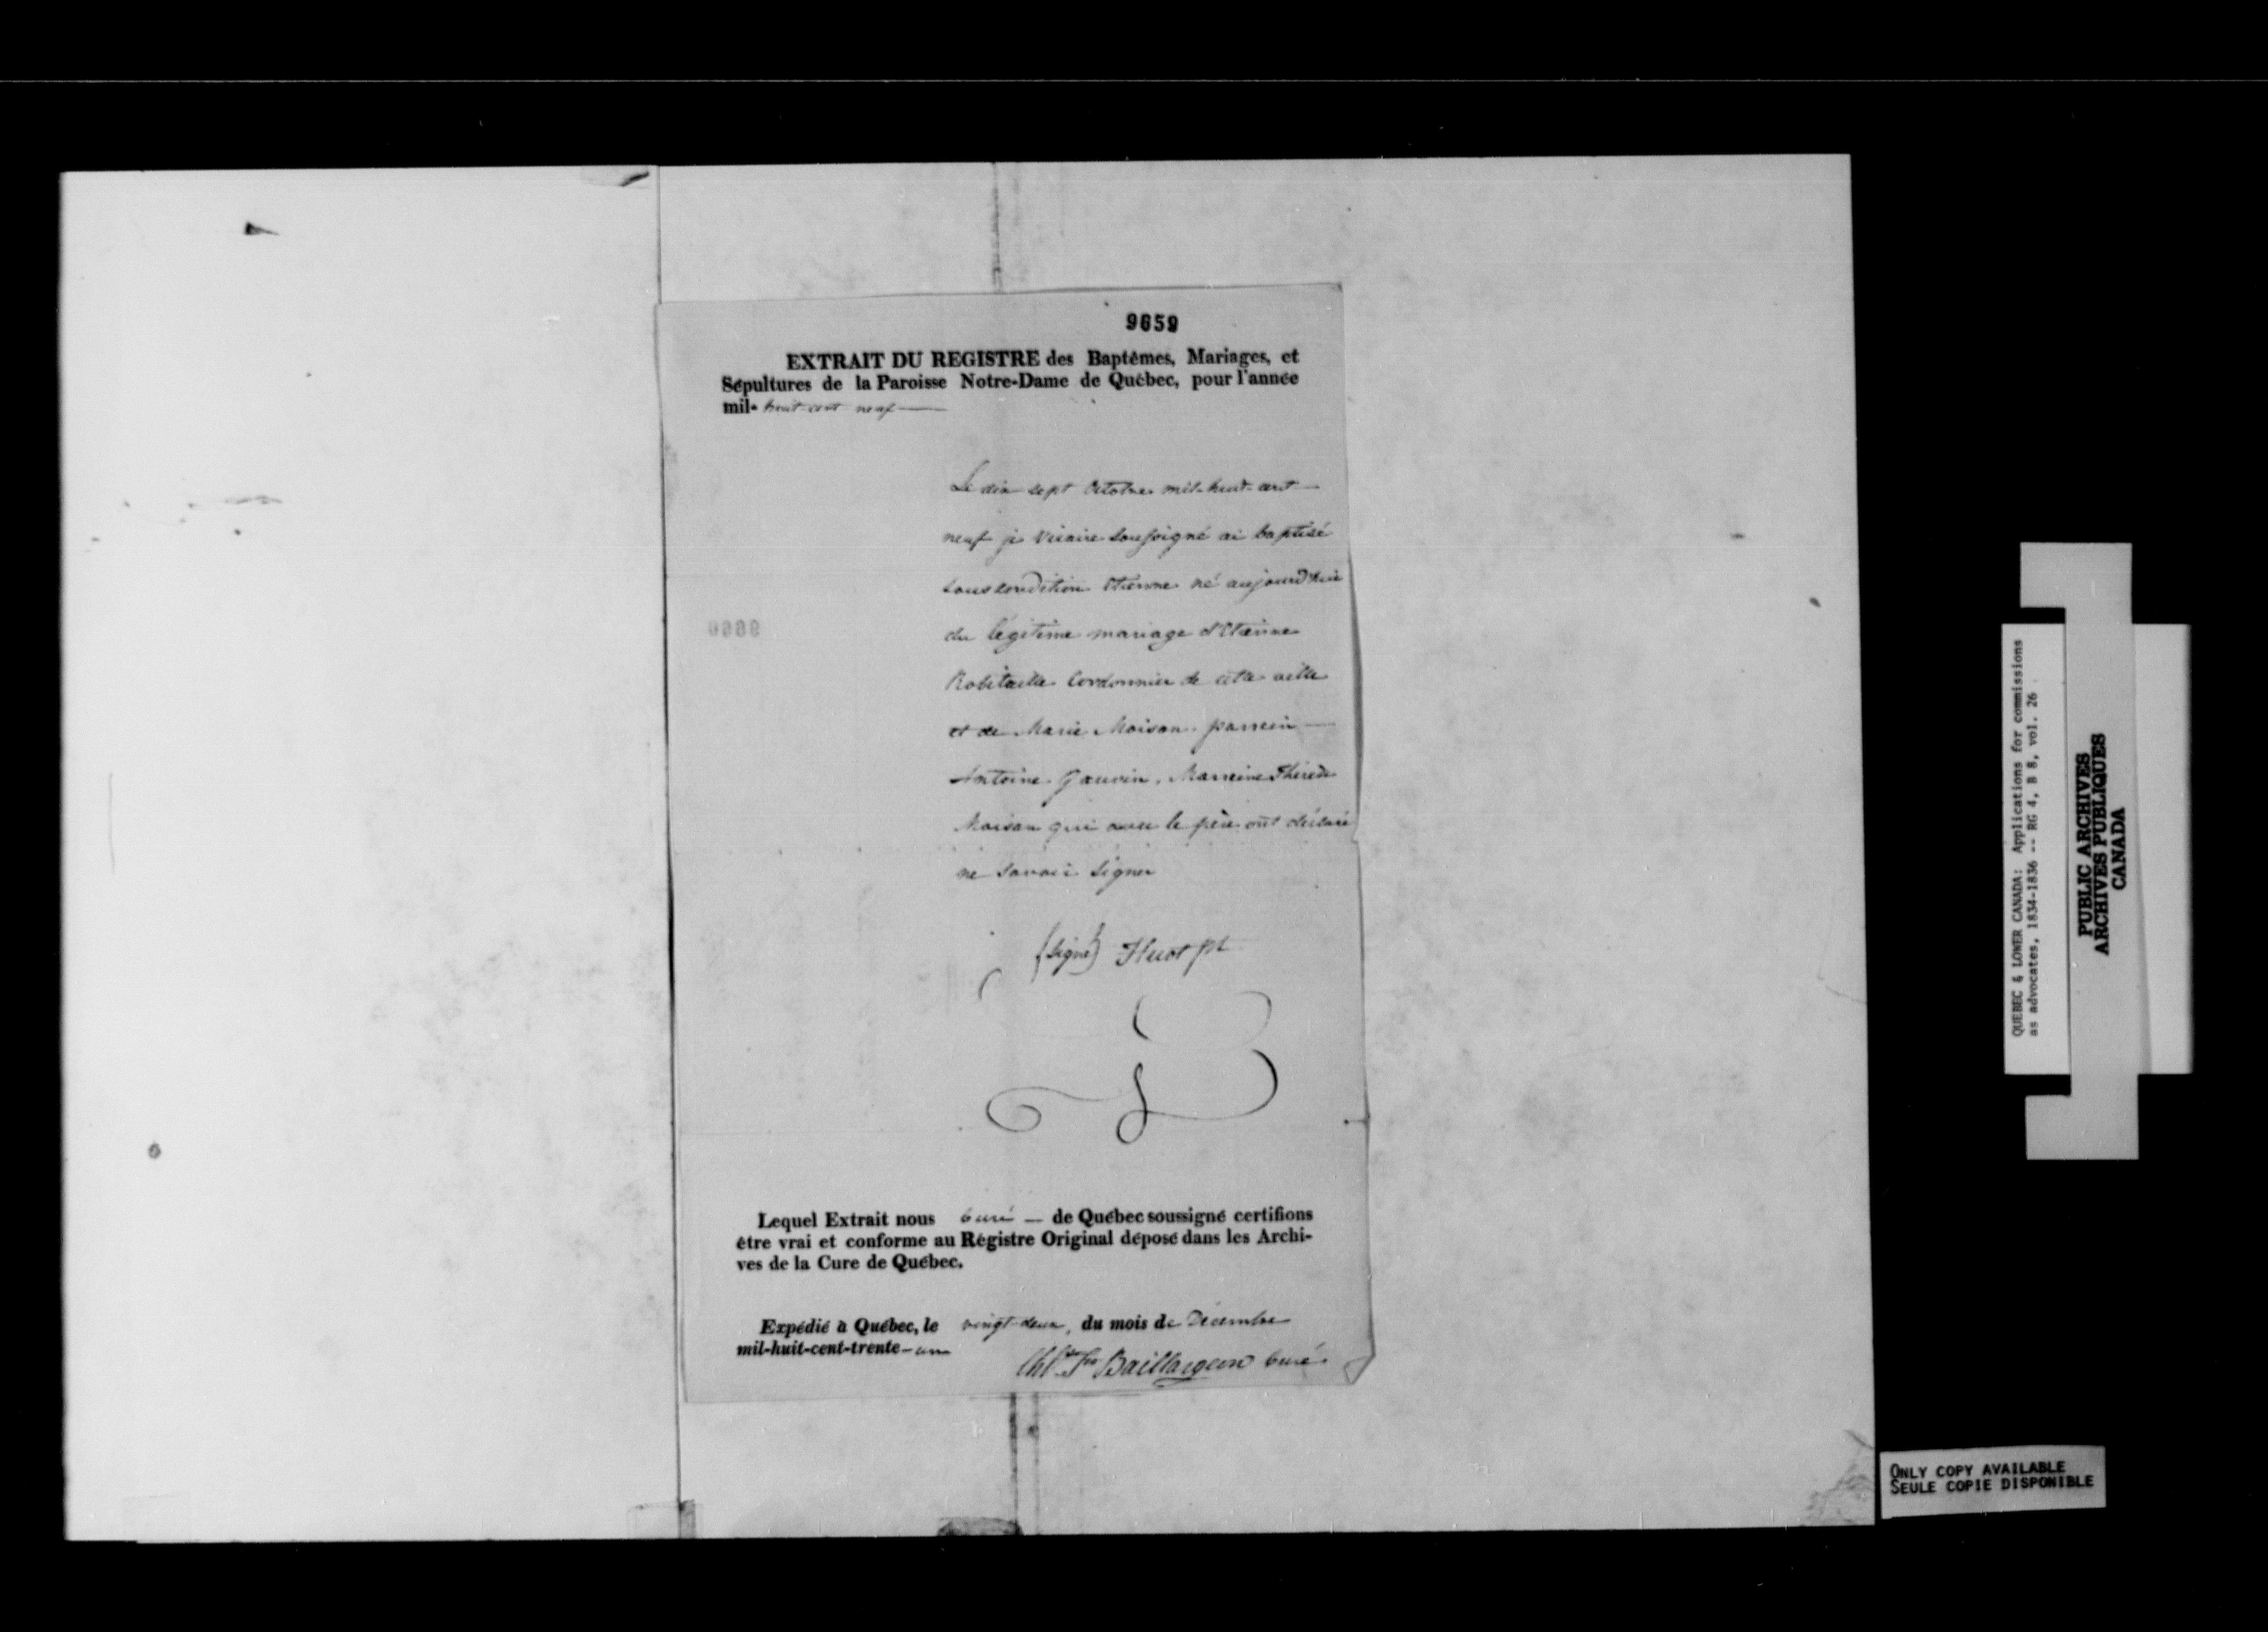 9659
EXTRAIT DU REGISTRE des Baptêmes, Mariages, et
Sépultures de la Paroisse Notre-Dame de Québec, pour l'année
mil- huit cent neuf
Le dix sept Octobre mil-huit-cent
neuf je Vicaire soussigné ai baptisé
sous condition Etienne né aujourd'hui
du légitime mariage d'Etienne
Robitaille Cordonnier de cette ville
et de Marie Moisan. parrein
Antoine Gauvin, Marreine Thérèse
Moisan qui avec le père ont déclaré
ne savoir signer
(signé) Huot pt
Lequel Extrait nous Curé — de Québec soussigné certifions
être vrai et conforme au Régistre Original déposé dans les Archi-
ves de la Cure de Québec.
Expédié à Québec, le vingt-deux, du mois de Décembre
mil-huit-cent-trente-un
Baillargeon Curé
QUEBEC & LOWER CANADA: Applications for commissions
as advocates, 1834-1836 -- RG 4, B 8, vol. 26
PUBLIC ARCHIVES
ARCHIVES PUBLIQUES
CANADA
ONLY COPY AVAILABLE
SEULE COPIE DISPONIBLE